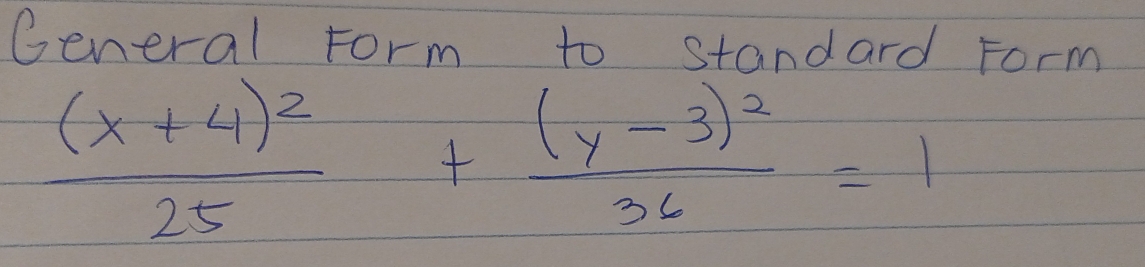 General Form to Standard Form
(x + 4)² / 25 + (y - 3)² / 36 = 1